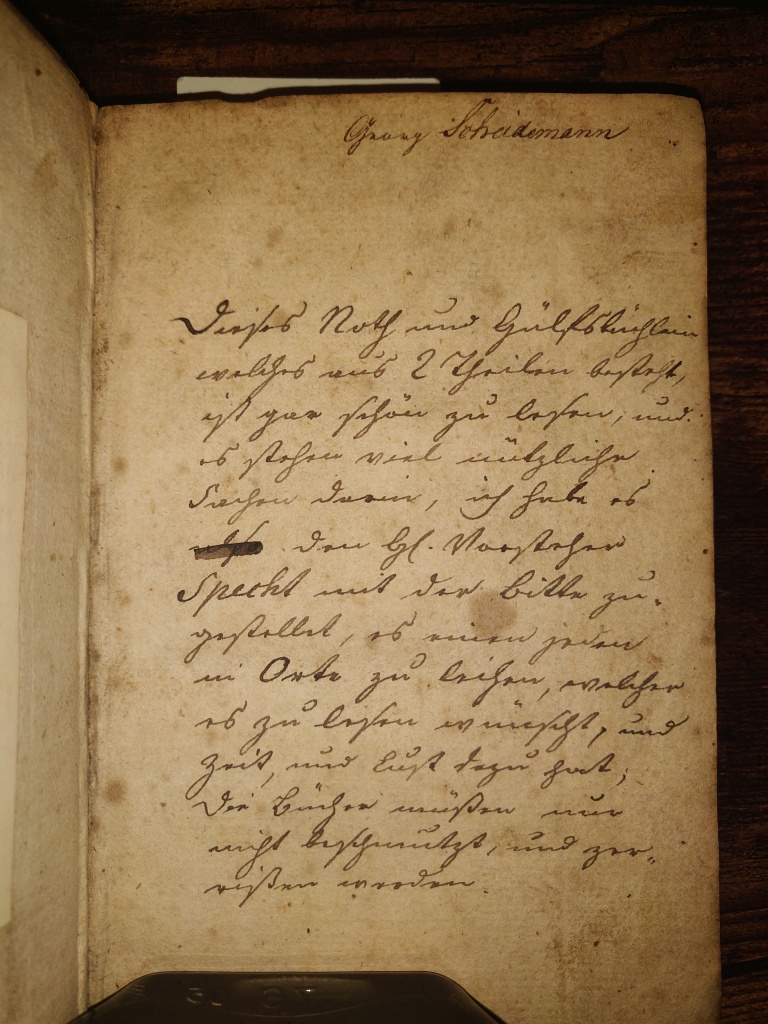 Georg Scheidemann
Dieses Noth und Hülfsbüchlein
welches aus 2 Theilen besteht,
ist gar schön zu lesen, und
es stehen viel nützliche
Sachen darin, ich habe es
den H. Vorsteher
Specht mit der Bitte zu-
gestellet, es einen jeden
in Orte zu leihen, welcher
es zu lesen wünscht, und
Zeit, und Lust dazu hat;
Die Bücher müßen nur
nicht beschmutzt, und zer-
rißen werden.